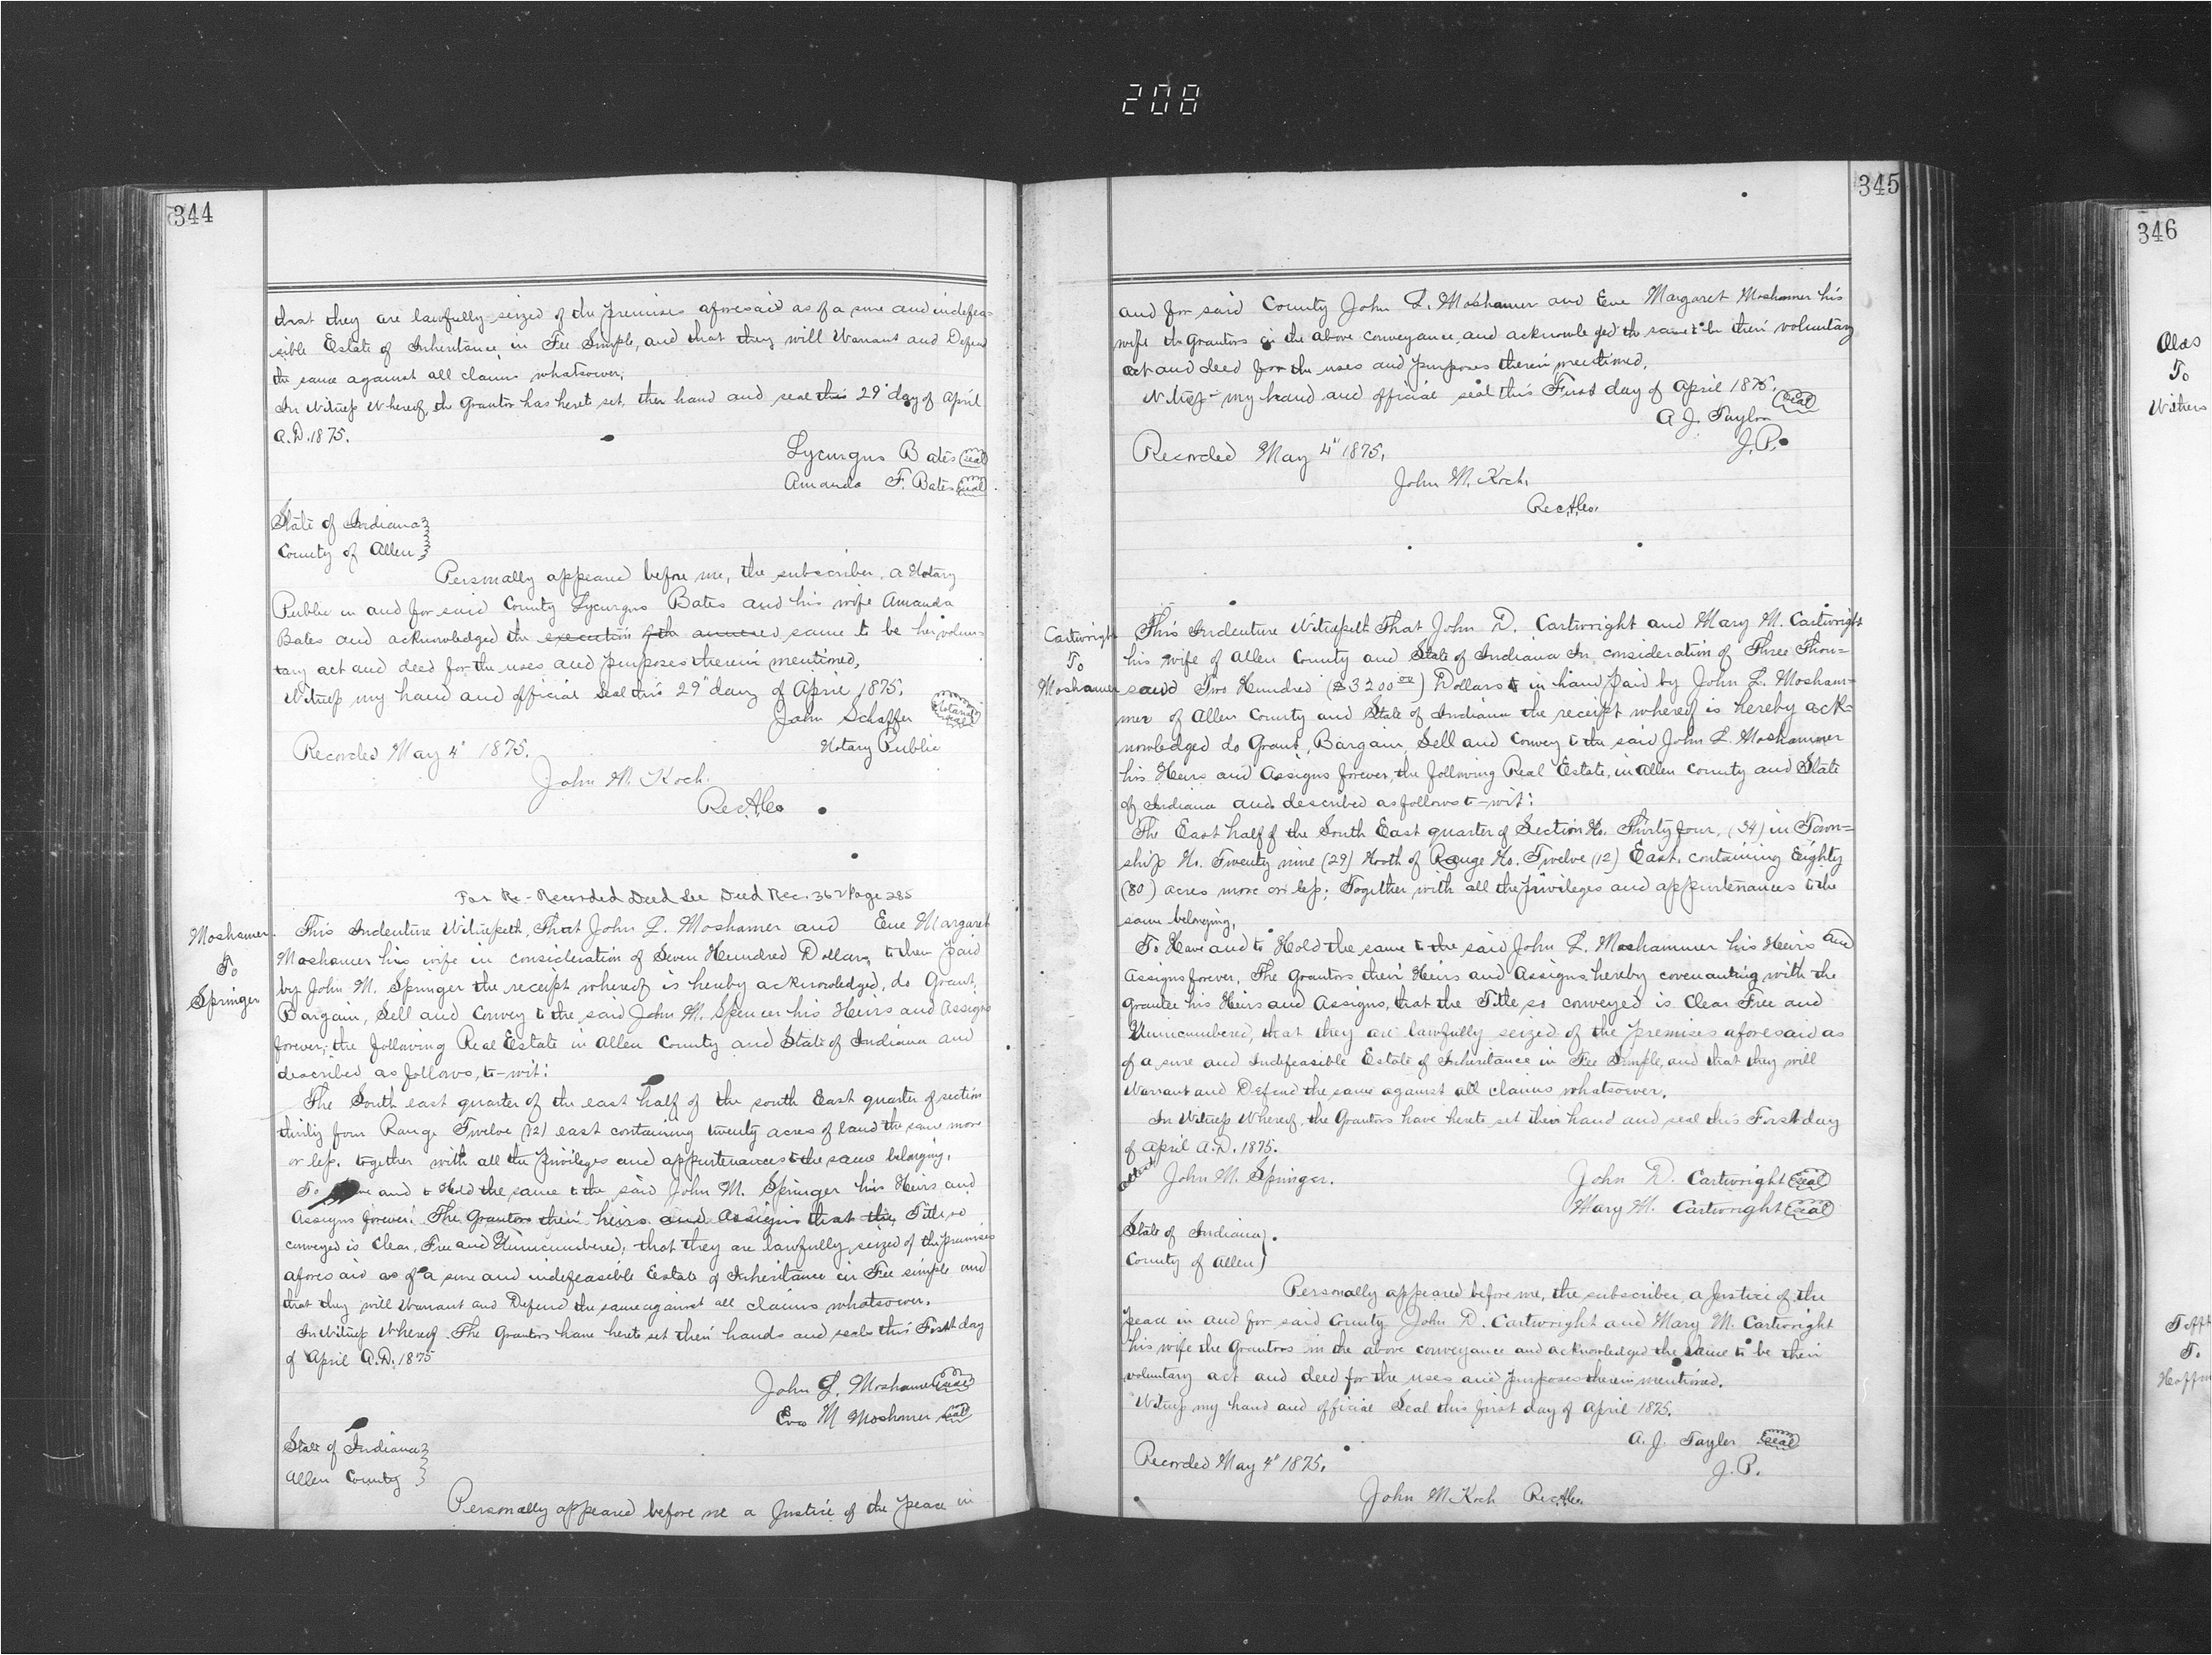 208
344
that they are lawfully seized of the premises aforesaid as of a sure and indefea-
sible Estate of Inheritance, in Fee Simple, and that they will Warrant and Defend
the same against all claims whatsoever,
In Witness Whereof, the Grantor has hereto set ther hand and seal this 29" day of April
A.D. 1875.
Lycurgus Bates (seal)
Amanda F. Bates (seal)
State of Indiana
County of Allen
Personally appeared before me, the subscriber, a Notary
Public in and for said County Lycurgus Bates and his wife Amanda
Bates and acknowledged the execution of the annexed same to be her volun-
tary act and deed for the uses and purposes therein mentioned,
Witness my hand and official Seal this 29" day of April 1875.
John Schaffer (Notarial Seal)
Notary Public
Recorded May 4" 1875.
John M. Koch.
Rec.A.Co.
For Re-Recorded Deed See Deed Rec. 362 Page 285
Moshamer
To
Springer
This Indenture Witnesseth, That John L. Moshamer and Eve Margaret
Moshamer his wife in consideration of Seven Hundred Dollars, to them paid
by John M. Springer the receipt whereof is hereby acknowledged, do Grant,
Bargain, Sell and Convey to the said John M. Spencer his Heirs and Assigns
forever, the following Real Estate in Allen County and State of Indiana and
described as follows, to-wit:
The South east quarter of the east half of the south East quarter of section
thirty four Range Twelve (12) east containing twenty acres of land the same more
or less. together with all the privileges and appurtenances to the same belonging,
To and to Hold the same to the said John M. Springer his Heirs and
Assigns forever. The Grantors their heirs and Assigns that the Title so
conveyed is Clear, Free and Unincumbered; that they are lawfully seized of the premises
aforesaid as of a sure and indefeasible Estate of Inheritance in Fee simple and
that they will Warrant and Defend the same against all claims whatsoever.
In Witness Whereof The Grantors have hereto set their hands and seals this First day
of April A.D. 1875
John L. Moshamer (seal)
Eve M Moshmer (seal)
State of Indiana
Allen County
Personally appeared before me a Justice of the peace in
345
and for said County John L. Moshamer and Eve Margaret Moshamer his
wife the Grantors in the above conveyance and acknowledged the same to be their voluntary
act and deed for the uses and purposes therein mentioned.
Witness my hand and official seal this First day of April 1875.
A. J. Taylor (seal)
J.P.
Recorded May 4" 1875.
John M. Koch.
Rec.A.Co.
Cartwright
To
Moshamer
This Indenture Witnesseth That John D. Cartwright and Mary M. Cartwright
his wife of Allen County and State of Indiana In consideration of Three Thou=
sand Two Hundred ($3200.00) Dollars to in hand paid by John L. Mosham=
mer of Allen County and State of Indiana the receipt whereof is hereby ack-
nowledged do Grant, Bargain, Sell and Convey to the said John L. Moshammer
his Heirs and Assigns forever, the following Real Estate, in Allen County and State
of Indiana and described as follows to-wit:
The East half of the South East quarter of Section No. Thirty four, (34) in Town=
ship No. Twenty nine (29) North of Range No. Twelve (12) East, containing Eighty
(80) acres more or less; Together with all the privileges and appurtenances to the
same belonging,
To Have and to Hold the same to the said John L. Moshammer his Heirs and
Assigns forever, The Grantors their Heirs and Assigns hereby covenanting with the
Grantee his Heirs and Assigns, that the Title so conveyed is Clear Free and
Unincumbered, that they are lawfully seized of the premises aforesaid as
of a sure and Indefeasible Estate of Inheritance in Fee Simple, and that they will
Warrant and Defend the same against all claims whatsoever.
In Witness Whereof, the Grantors have hereto set their hand and seal this First day
of April A.D. 1875.
Attest John M. Springer.
John D. Cartwright (seal)
Mary M. Cartwright (seal)
State of Indiana
County of Allen
Personally appeared before me, the subscriber, a Justice of the
peace in and for said County John D. Cartwright and Mary M. Cartwright
his wife the Grantors in the above conveyance and acknowledged the same to be their
voluntary act and deed for the uses and purposes therein mentioned.
Witness my hand and official Seal this first day of April 1875.
A. J. Taylor (seal)
J.P.
Recorded May 4" 1875.
John M Koch Rec.A.Co.
346
Olds
To
Withers
Tefft
To